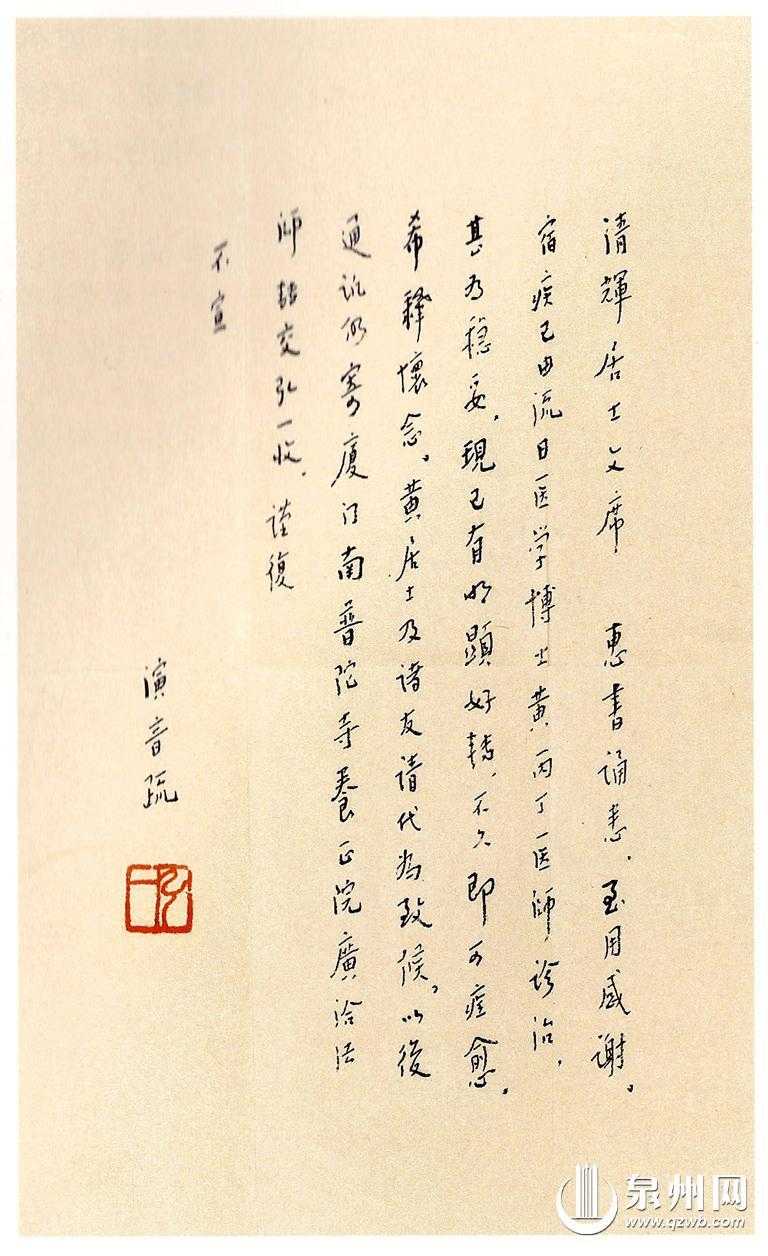 清輝居士文席 惠書誦悉，至用感谢。
宿疾已由流日医学博士黄丙丁医師診治，
甚为稳妥，現已有明顕好轉，不久即可痊愈。
希释懷念。黄居士及诸友请代为致候。以後
通訊仍寄厦门南普陀寺養正院廣洽法
師轉交弘一收，谨復
不宣
演音疏
弘一
泉州网
www.qzwb.com